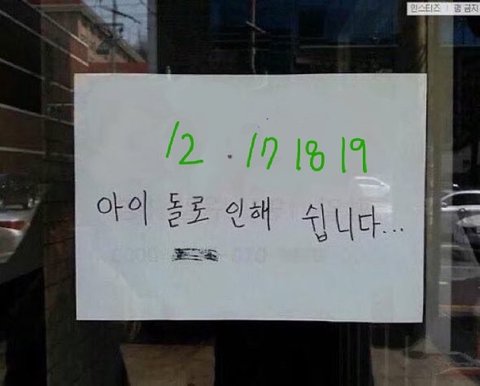 인스티즈 | 펌 금지
12 . 17 18 19
아이 돌로 인해 쉽니다...